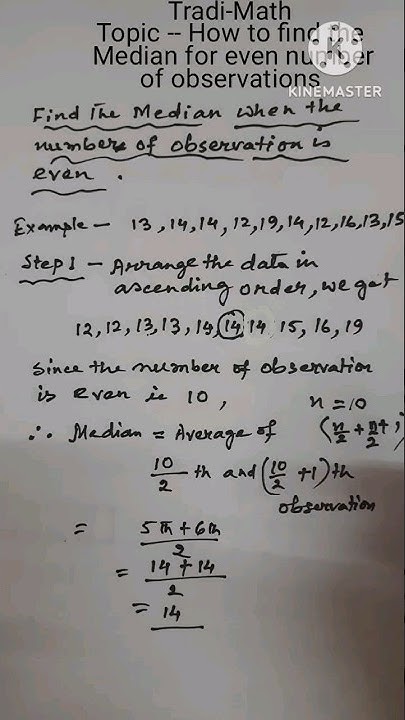 Tradi-Math
Topic -- How to find the
Median for even number
of observations
KINEMASTER
Find The Median when the
numbers of observation is
even .
Example - 13, 14, 14, 12, 19, 14, 12, 16, 13, 15
Step 1 - Arrange the data in
ascending order, we get
12, 12, 13, 13, 14, 14 14 15, 16, 19
Since the number of observation
is even ie 10,
n = 10
∴ Median = Average of
10/2 th and (10/2 + 1)th
observation
= 5th + 6th / 2
= 14 + 14 / 2
= 14